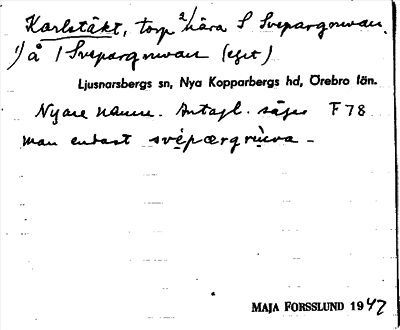 Karlstäkt, torp 2) nära S Svepargruvan.
1) å 1 Svepargruvan (eget)
Ljusnarsbergs sn, Nya Kopparbergs hd, Örebro län.
Nyare namn. Antagl. säges F 78
man endast svépærgrùva -
MAJA FORSSLUND 1947